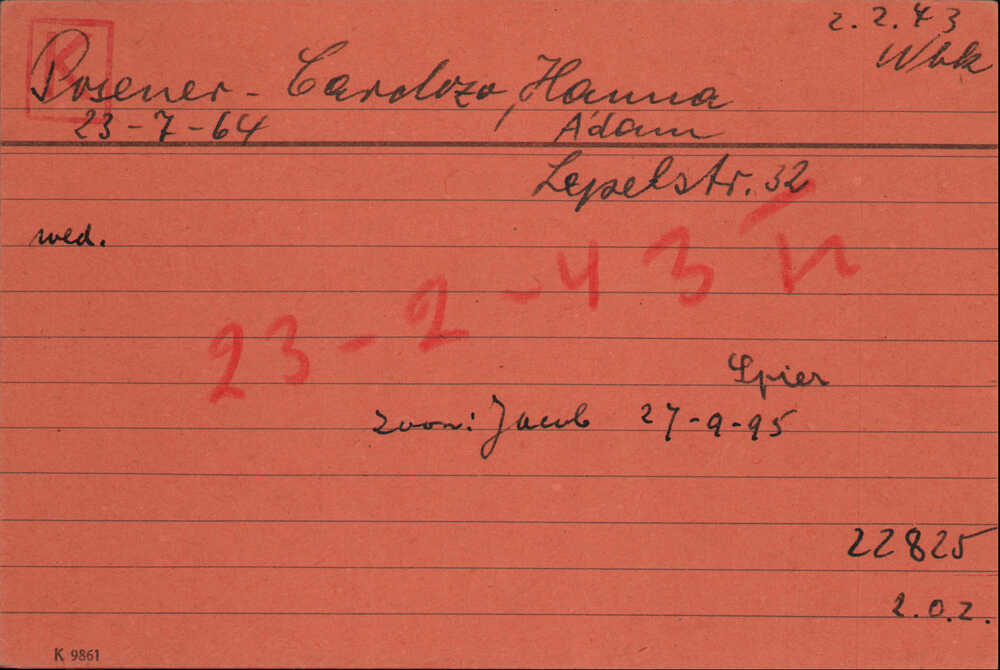 2.2.43
Wbk
K
Posener - Cardozo, Hanna
23-7-64 Adam
Lepelstr. 32
wed.
23-2-43
Spier
zoon: Jacob 27-9-95
22825
2.0.2.
K 9861